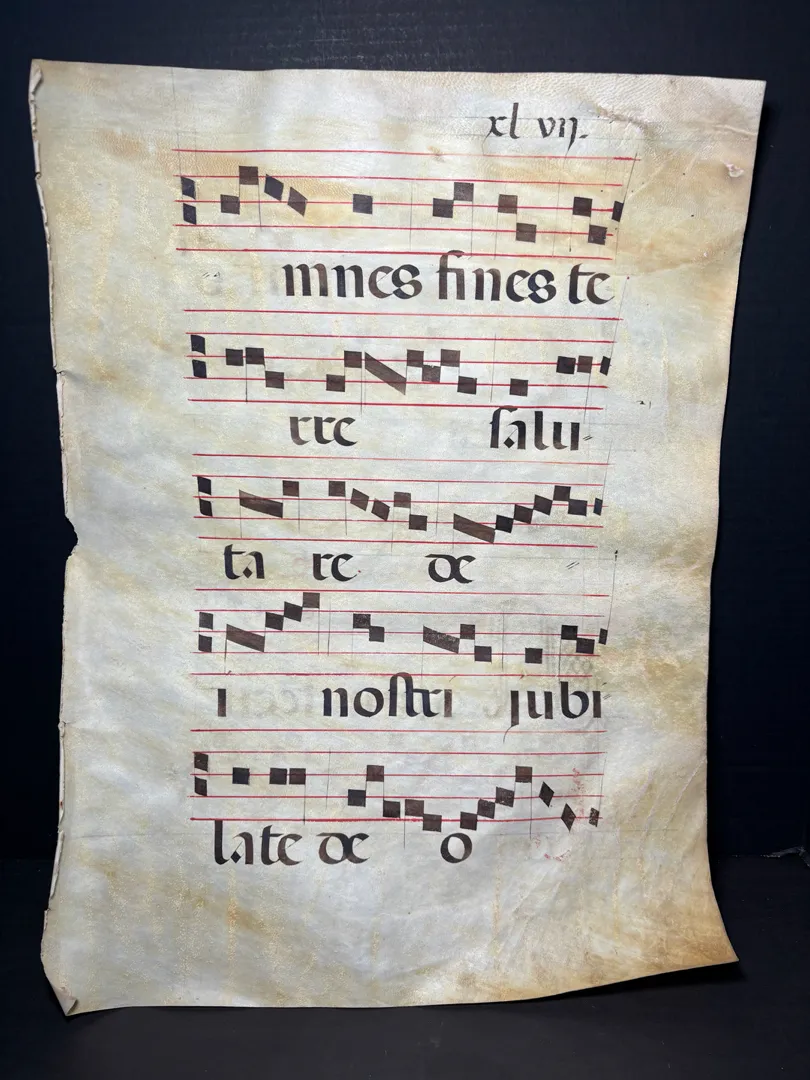 xl vij.
mnes fines te
rre salu-
ta re de
i nostri jubi
late de o